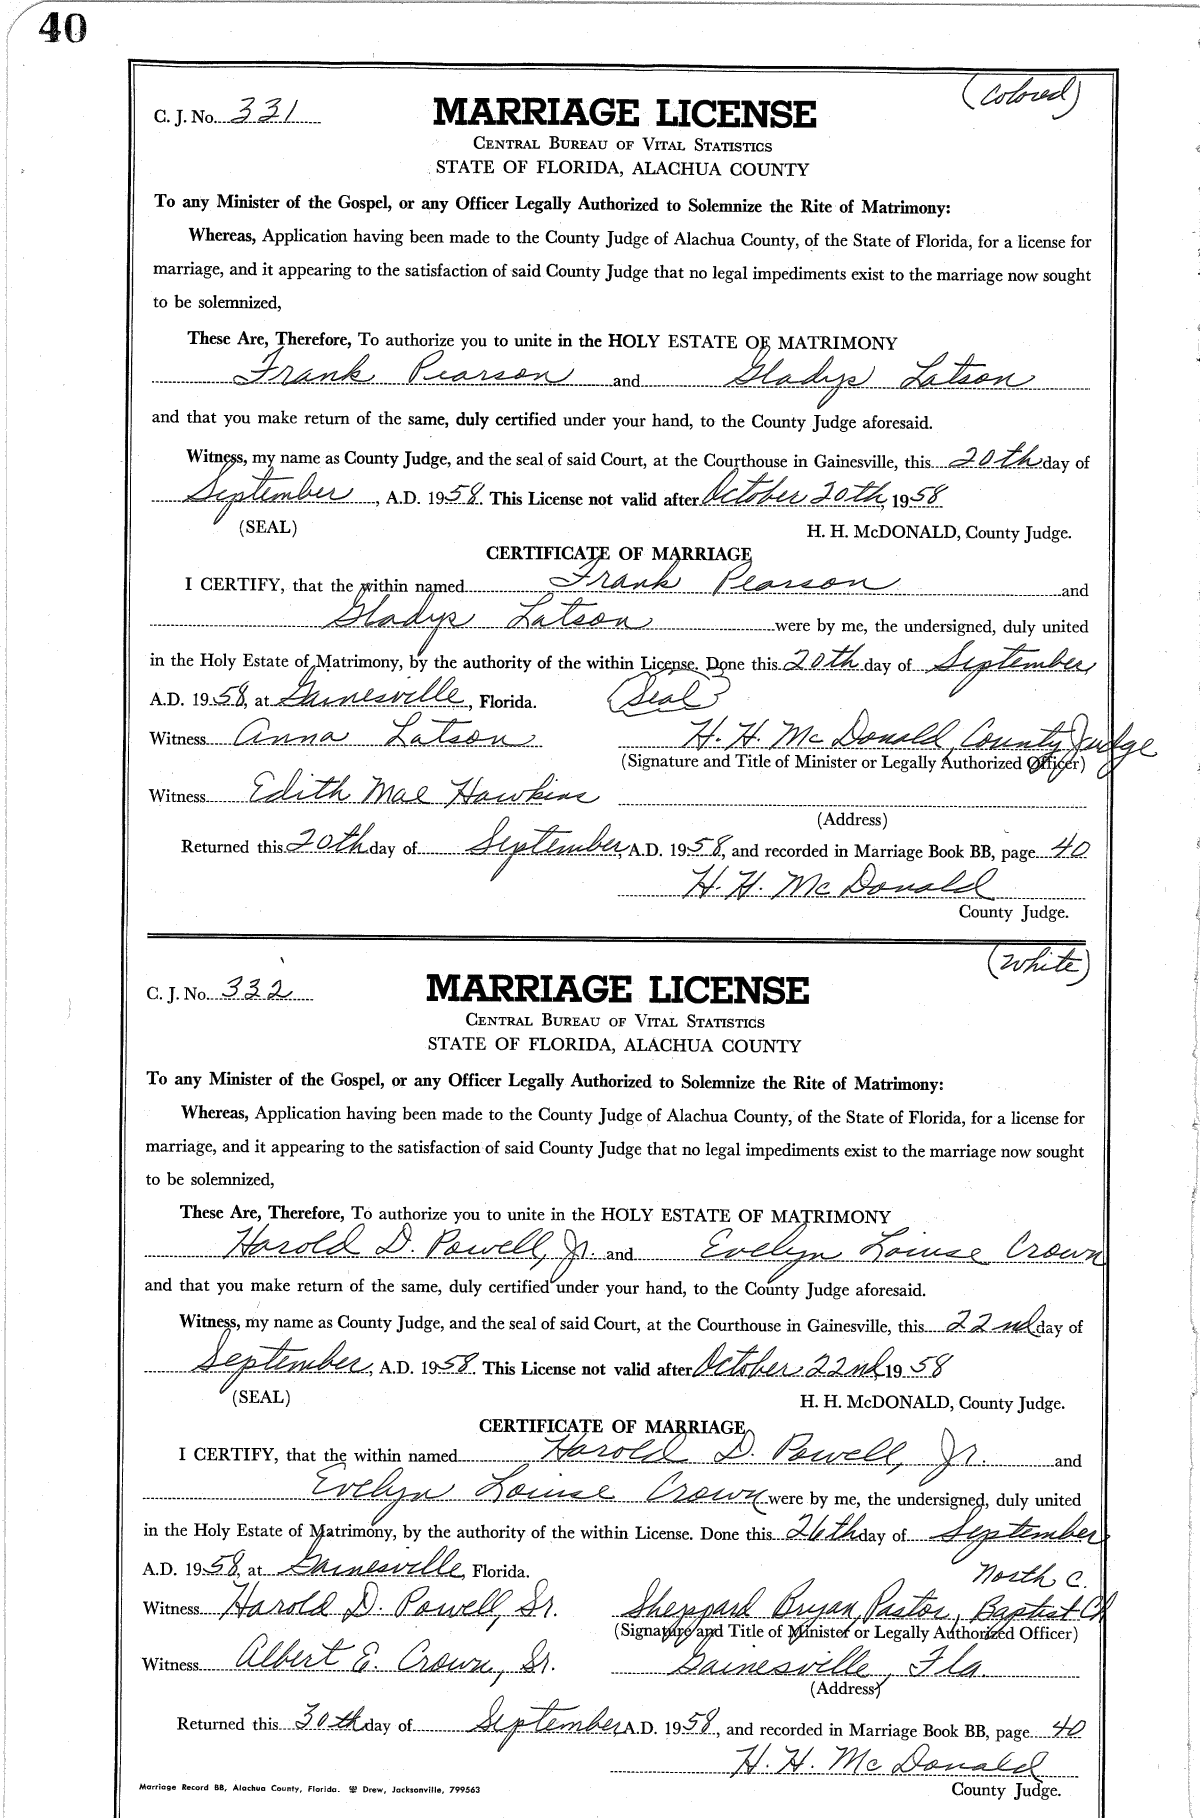 40
(Colored)
C. J. No. 331
MARRIAGE LICENSE
CENTRAL BUREAU OF VITAL STATISTICS
STATE OF FLORIDA, ALACHUA COUNTY
To any Minister of the Gospel, or any Officer Legally Authorized to Solemnize the Rite of Matrimony:
Whereas, Application having been made to the County Judge of Alachua County, of the State of Florida, for a license for
marriage, and it appearing to the satisfaction of said County Judge that no legal impediments exist to the marriage now sought
to be solemnized,
These Are, Therefore, To authorize you to unite in the HOLY ESTATE OF MATRIMONY
Frank Pearson and Gladys Latson
and that you make return of the same, duly certified under your hand, to the County Judge aforesaid.
Witness, my name as County Judge, and the seal of said Court, at the Courthouse in Gainesville, this 20th day of
September, A.D. 1958. This License not valid after October 20th, 1958
(SEAL) H. H. McDONALD, County Judge.
CERTIFICATE OF MARRIAGE
I CERTIFY, that the within named Frank Pearson and
Gladys Latson were by me, the undersigned, duly united
in the Holy Estate of Matrimony, by the authority of the within License. Done this 20th day of September,
A.D. 1958, at Gainesville, Florida. (Seal)
Witness Anna Latson H. H. McDonald, County Judge
(Signature and Title of Minister or Legally Authorized Officer)
Witness Edith Mae Hawkins
(Address)
Returned this 20th day of September, A.D. 1958, and recorded in Marriage Book BB, page 40
H. H. McDonald
County Judge.
(White)
C. J. No. 332
MARRIAGE LICENSE
CENTRAL BUREAU OF VITAL STATISTICS
STATE OF FLORIDA, ALACHUA COUNTY
To any Minister of the Gospel, or any Officer Legally Authorized to Solemnize the Rite of Matrimony:
Whereas, Application having been made to the County Judge of Alachua County, of the State of Florida, for a license for
marriage, and it appearing to the satisfaction of said County Judge that no legal impediments exist to the marriage now sought
to be solemnized,
These Are, Therefore, To authorize you to unite in the HOLY ESTATE OF MATRIMONY
Harold D. Powell, Jr. and Evelyn Louise Crown
and that you make return of the same, duly certified under your hand, to the County Judge aforesaid.
Witness, my name as County Judge, and the seal of said Court, at the Courthouse in Gainesville, this 22nd day of
September, A.D. 1958. This License not valid after October 22nd, 1958
(SEAL) H. H. McDONALD, County Judge.
CERTIFICATE OF MARRIAGE
I CERTIFY, that the within named Harold D. Powell, Jr. and
Evelyn Louise Crown were by me, the undersigned, duly united
in the Holy Estate of Matrimony, by the authority of the within License. Done this 26th day of September
A.D. 1958, at Gainesville, Florida. North C.
Witness Harold D. Powell, Sr. Sheppard Bryan, Pastor, Baptist Ch
(Signature and Title of Minister or Legally Authorized Officer)
Witness Albert E. Crown, Sr. Gainesville, Fla.
(Address)
Returned this 30th day of September, A.D. 1958, and recorded in Marriage Book BB, page 40
H. H. McDonald
Marriage Record BB, Alachua County, Florida. Drew, Jacksonville, 799563 County Judge.